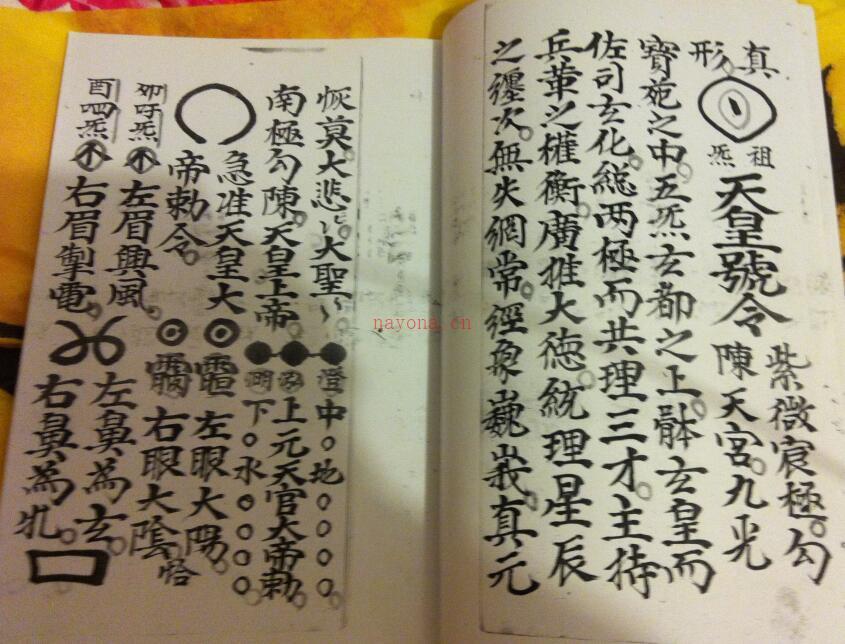 真形
祖炁
天皇號令
紫微宸極。勾
陳天宮。九光
寶苑之中。五炁玄都之上。體玄皇而
佐司玄化。總两極而共理三才。主持
兵革之權衡。廣推大德。統理星辰
之纏次。無失綱常。經象巍峩。真元
恢莫。大悲〻大聖〻
南極勾陳。天皇上帝
急准天皇大
帝勅令。
卯吁炁
左眉興風。
酉呬炁
右眉掣電。
澄中。地。。。。
泓上元天官大帝勅。
下。水。。。。
左眼大陽。
右眼大陰。恰
左鼻為玄。
右鼻為牝。
nayona.cn